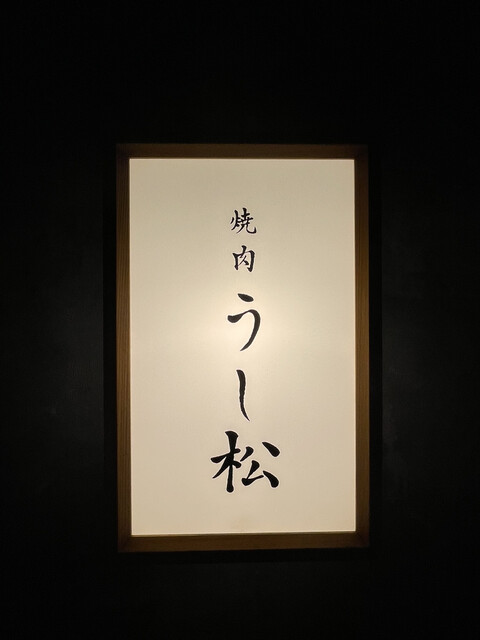 焼肉うし松